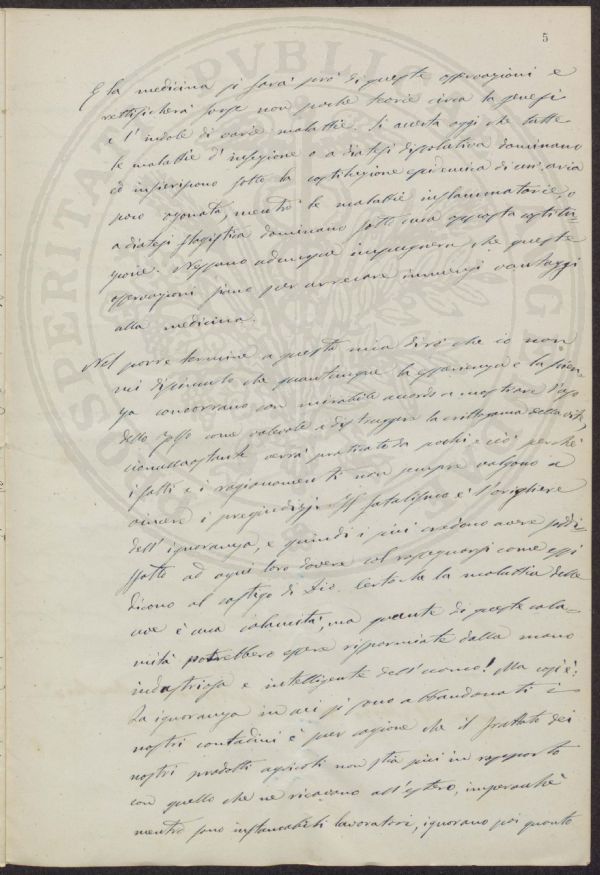 5
E la medicina si farà prò di queste osservazioni e
rettificherà forse non poche teorie circa la genesi
e l'indole di varie malattie. Si accerta oggi che tutte
le malattie d'infezione o a diatesi dissolutiva dominano
ed inferiscono sotto la costituzione epidemica di un'aria
poco ozonata, mentre le malattie inflammatorie, o
a diatesi flogistica dominano sotto una opposta costitu-
zione. Nessuno adunque impugnerà che queste
osservazioni siano per arrecare immensi vantaggi
alla medicina.
Nel porre termine a questa mia dirò che io non
mi dissimulo che quantunque la esperienza e la scien-
za concorrano con mirabile accordo a mostrare l'uso
dello zolfo come valevole a distruggere la crittogama della vite,
ciononostante verrà praticato da pochi e ciò perchè
i fatti e i ragionamenti non sempre valgono a
vincere i pregiudizj. Il fatalismo è l'origliere
dell'ignoranza, e quindi i più credono avere soddi-
sfatto ad ogni loro dovere col rassegnarsi come essi
dicono al castigo di Dio. Certo che la malattia delle
uve è una calamità, ma quante di queste cala-
mità potrebbero essere risparmiate dalla mano
industriosa e intelligente dell'uomo! Ma così è:
La ignoranza in cui si sono abbandonati i
nostri contadini è per cagione che il fruttato dei
nostri prodotti agricoli non stia più in rapporto
con quello che ne ricavano all'estero, imperocchè
mentre sono instancabili lavoratori, ignorano poi quanto
PVBLICA